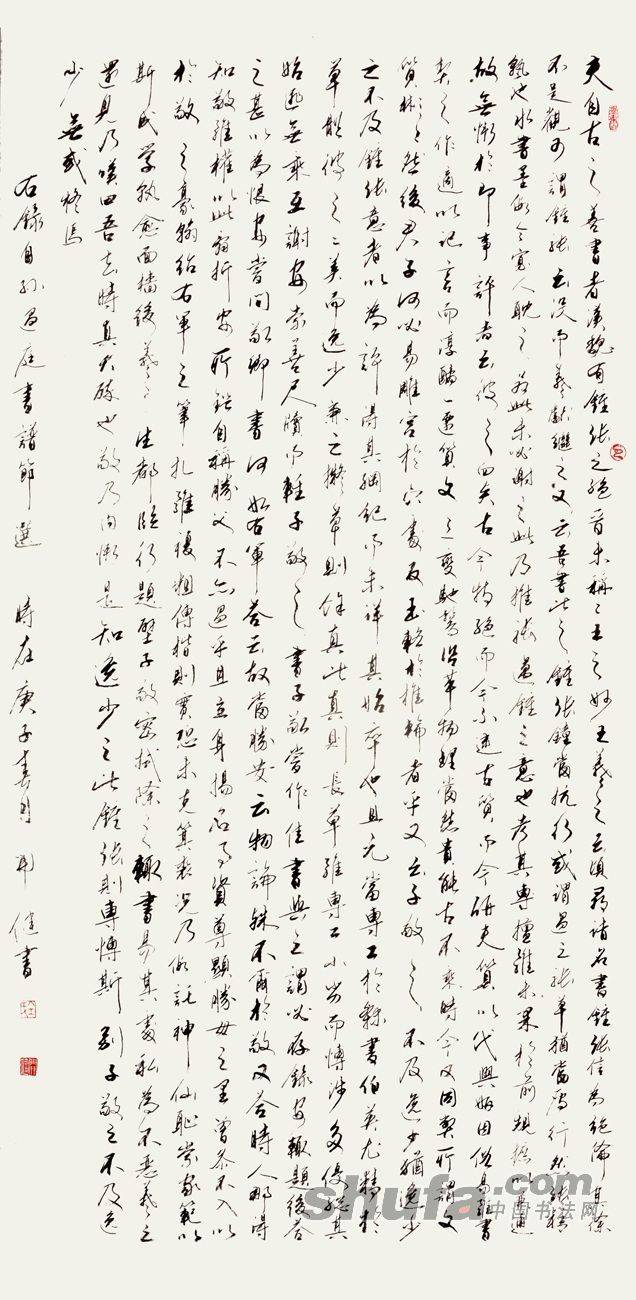 夫自古之善書者漢魏有鍾張之絕晉末稱二王之妙王羲之云頃尋諸名書鍾張信為絕倫其餘
不足觀可謂鍾張云沒而羲獻繼之又云吾書比之鍾張鍾當抗行或謂過之張草猶當雁行然張精
熟池水書墨假令寡人耽之若此未必謝之此乃推張邁鍾之意也考其專擅雖未果於前規摭以兼通
故無慚於即事評者云彼之四賢古今特絕而今不逮古質而今妍夫質以代興妍因俗易雖書
契之作適以記言而淳醨一遷質文三變馳騖沿革物理常然貴能古不乖時今不同弊所謂文
質彬彬然後君子何必易雕宮於穴處反玉輅於椎輪者乎又云子敬之不及逸少猶逸少
之不及鍾張意者以為評得其綱紀而未詳其始卒也且元常專工於隸書伯英尤精於
草體彼之二美而逸少兼之擬草則餘真比真則長草雖專工小劣而博涉多優總其
始終匪無乖互謝安素善尺牘而輕子敬之書子敬嘗作佳書與之謂必存錄安輒題後答
之甚以為恨安嘗問敬卿書何如右軍答云故當勝安云物論殊不爾於敬又答時人那得
知敬雖權以此辭折安所鑒自稱勝父不亦過乎且立身揚名事資尊顯勝母之里曾參不入以
於敬之豪翰紹右軍之筆札雖復粗傳楷則實恐未克箕裘況乃假託神仙恥崇家範以
斯成學孰愈面牆後羲之往都臨行題壁子敬密拭除之輒書易其處私為不惡羲之
還見乃嘆曰吾去時真大醉也敬乃內慚是知逸少之比鍾張則專博斯別子敬之不及逸
少無或疑焉
右錄自孫過庭書譜節選 時在庚子春月 健書
shufa.com
中国书法网